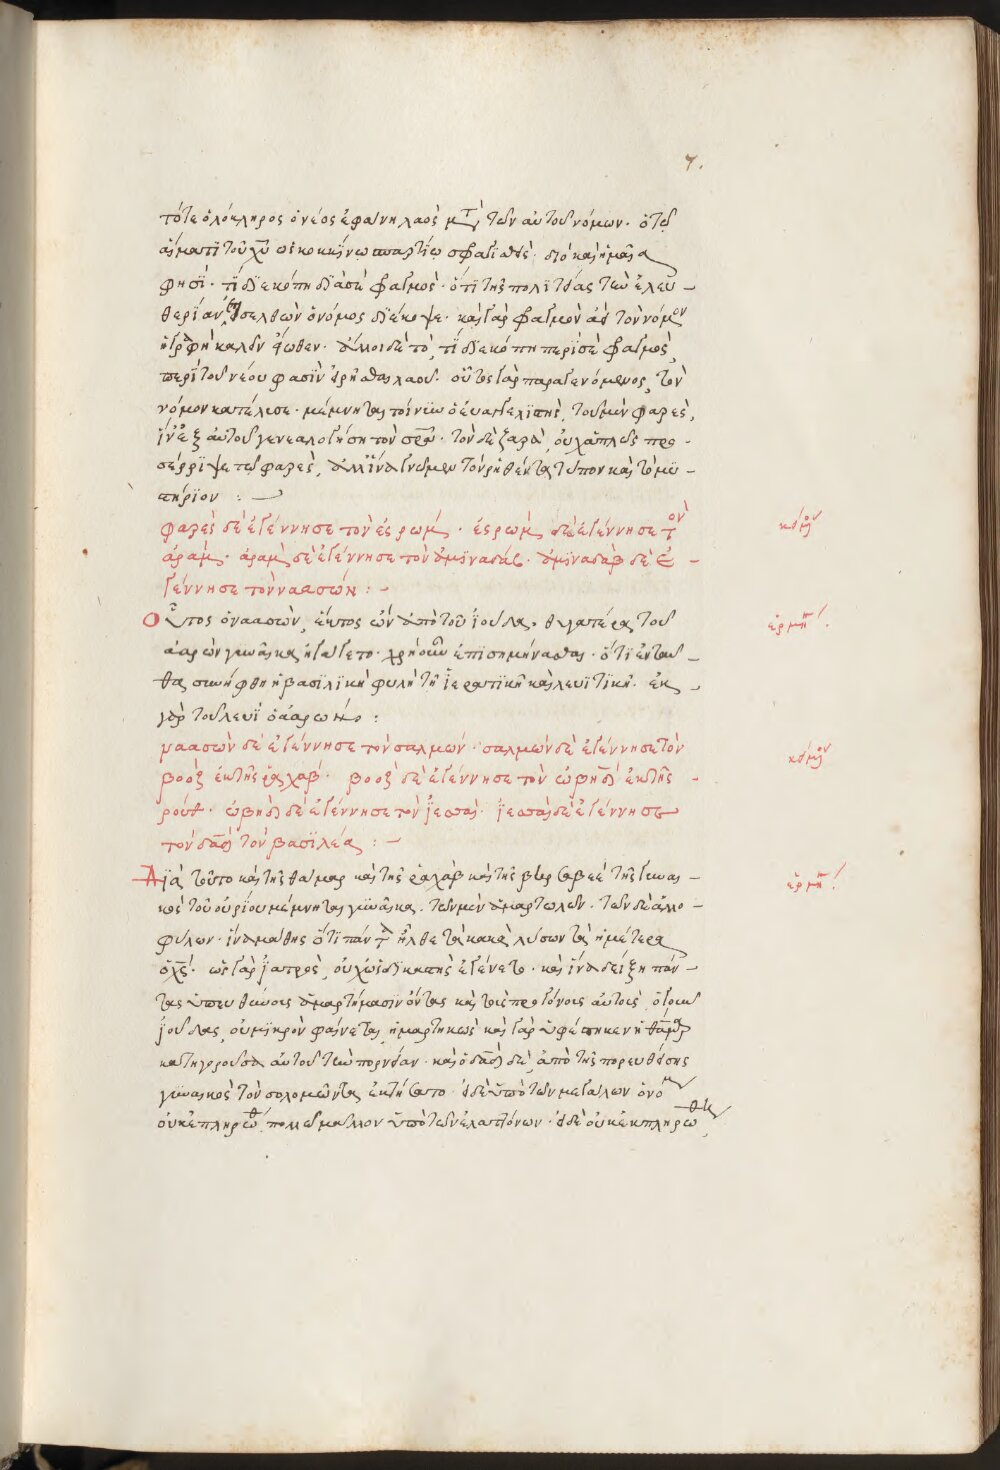 7.
τότε ὁλόκληρος ὁ νέος ἐφαίνη λαὸς μετὰ τῶν αὐτοῦ νόμων. ὁ τῷ
αἵματι τοῦ χυ ὡς κοκκίνω σπαρτίω σφαγισθείς. διὸ καὶ ἡμᾶς
φησί. τί διεκόπη διὰ σὲ φαγμός. ὅτι τῆς πολιτείας τῶν ἐλευ –
θερίαν εἰσελθὼν ὁ νόμος διέκοψε. καὶ γὰρ φαγμὸν τὸν νόμον
ἡ γραφὴ καλεῖν εἴωθεν. ἄλλοι δὲ τὸ, τί διεκόπη περὶ σὲ φαγμὸς,
περὶ τοῦ νέου φασὶν εἰρῆσθαι λαοῦ. οὗτος γὰρ παραγενόμενος, τὸν
νόμον κατέλυσε. μέμνηται τοίνυν ὁ εὐαγγελιστὴς, τοῦ μὲν φαρὲς,
ἵν' ἐξ αὐτοῦ γενεαλογήση τὸν σρα. τὸν δὲ ζαρὰ, οὐχ ἁπλῶς προ –
σέρριψε τῷ φαρὲς, ἀλλ' ἵνα γνῶμεν τὸν ῥηθέντα τύπον καὶ τὸ μυ –
στήριον : –
φαρὲς δὲ ἐγέννησε τὸν ἐσρώμ. ἐσρὼμ δὲ ἐγέννησε τὸν
ἀράμ. ἀρὰμ δὲ ἐγέννησε τὸν ἀμϊναδάβ. ἀμϊναδὰβ δὲ ἐ –
γέννησε τὸν ναασσών : –
κείμενον
Οὗτος ὁ ναασσὼν, ἕκτος ὢν ἀπὸ τοῦ ἰούδα, θυγατέρα τοῦ
ἑρμη
ἀαρὼν γυναῖκα ἠγάγετο. χρήσιμον ἐπισημήνασθαι. ὅτι ἐνταῦ –
θα συνήφθη ἡ βασιλικὴ φυλὴ τῆ ἱερατικῆ καὶ λευϊτικῆ. ἐκ
γὰρ τοῦ λευῒ ὁ ἀαρων :
ναασσὼν δὲ ἐγέννησε τὸν σαλμών. σαλμὼν δὲ ἐγέννησε τὸν
κείμενον
βοὸζ ἐκ τῆς ῥαχάβ. βοὸζ δὲ ἐγέννησε τὸν ὠβὴδ ἐκ τῆς –
ρούθ. ὠβὴδ δὲ ἐγέννησε τὸν ἰεσσαί. ἰεσσαὶ δὲ ἐγέννησε
τὸν δαδ τὸν βασιλέα : –
Διὰ τοῦτο καὶ τῆς θάμαρ καὶ τῆς ῥαχὰβ καὶ τῆς βηρσαβεὲ τῆς γυναι –
ἑρμη
κὸς τοῦ οὐρίου μέμνηται γυναῖκα. τῶν μὲν ἁμαρτωλῶν. τῶν δὲ ἀλλο –
φύλων. ἵνα μάθης ὅτι πάντα ἦλθε τὰ κακὰ λύσων τὰ ἡμέτερα
ὁ χς. ὡς γὰρ ἰατρὸς, οὐχ ὡς δικαστὴς ἐγένετο. καὶ ἵνα δείξη πάν –
τας ὑπευθύνοις ἁμαρτήμασιν ὄντας καὶ τοῖς προγόνοις αὐτοῖς. ὁ γοῦν
ἰούδας, οὐ μικρὸν φαίνεται ἡμαρτηκώς. καὶ γὰρ ὑφέστηκεν ἡ θάμαρ
κατηγοροῦσα αὐτοῦ τῶν πορνείαν. καὶ ὁ δαδ δὲ, ἀπὸ τῆς πορευθείσης
γυναικὸς τὸν σολομῶντα ἐκτήσατο. εἰ δὲ ὑπὸ τῶν μεγάλων ὁ νόμος
οὐκ ἐπληρώθη, πολλῷ μᾶλλον ὑπὸ τῶν ἐλαττόνων. εἰ δὲ οὐκ ἐκπληρωθῆ,